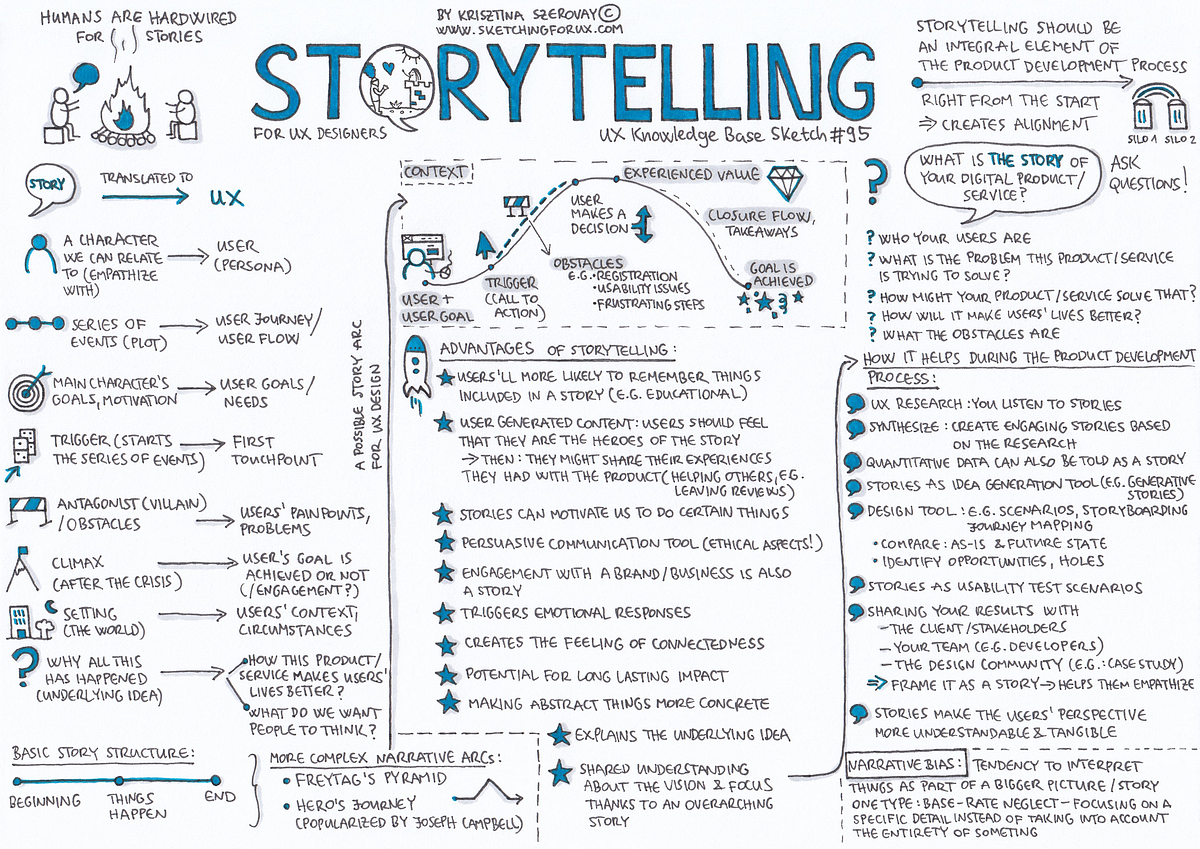 HUMANS ARE HARDWIRED
FOR STORIES
BY KRISZTINA SZEROVAY ©
WWW.SKETCHINGFORUX.COM
STORYTELLING
FOR UX DESIGNERS
UX Knowledge Base Sketch #95
STORYTELLING SHOULD BE
AN INTEGRAL ELEMENT OF
THE PRODUCT DEVELOPMENT PROCESS
RIGHT FROM THE START
⇒ CREATES ALIGNMENT
SILO 1 SILO 2
STORY
TRANSLATED TO
UX
A CHARACTER
WE CAN RELATE
TO (EMPATHIZE
WITH)
USER
(PERSONA)
SERIES OF
EVENTS (PLOT)
USER JOURNEY/
USER FLOW
MAIN CHARACTER'S
GOALS, MOTIVATION
USER GOALS/
NEEDS
TRIGGER (STARTS
THE SERIES OF EVENTS)
FIRST
TOUCHPOINT
ANTAGONIST (VILLAIN)
/OBSTACLES
USERS' PAINPOINTS,
PROBLEMS
CLIMAX
(AFTER THE CRISIS)
USER'S GOAL IS
ACHIEVED OR NOT
(/ENGAGEMENT?)
SETTING
(THE WORLD)
USERS' CONTEXT,
CIRCUMSTANCES
? WHY ALL THIS
HAS HAPPENED
(UNDERLYING IDEA)
HOW THIS PRODUCT/
SERVICE MAKES USERS'
LIVES BETTER?
WHAT DO WE WANT
PEOPLE TO THINK?
BASIC STORY STRUCTURE:
BEGINNING
THINGS
HAPPEN
END
MORE COMPLEX NARRATIVE ARCS:
• FREYTAG'S PYRAMID
• HERO'S JOURNEY
(POPULARIZED BY JOSEPH CAMPBELL)
A POSSIBLE STORY ARC
FOR UX DESIGN
CONTEXT
USER +
USER GOAL
TRIGGER
(CALL TO
ACTION)
OBSTACLES
E.G. • REGISTRATION
• USABILITY ISSUES
• FRUSTRATING STEPS
USER
MAKES A
DECISION
EXPERIENCED VALUE
CLOSURE FLOW,
TAKEAWAYS
GOAL IS
ACHIEVED
ADVANTAGES OF STORYTELLING:
USERS'LL MORE LIKELY TO REMEMBER THINGS
INCLUDED IN A STORY (E.G. EDUCATIONAL)
USER GENERATED CONTENT: USERS SHOULD FEEL
THAT THEY ARE THE HEROES OF THE STORY
→ THEN: THEY MIGHT SHARE THEIR EXPERIENCES
THEY HAD WITH THE PRODUCT (HELPING OTHERS, E.G.
LEAVING REVIEWS)
STORIES CAN MOTIVATE US TO DO CERTAIN THINGS
PERSUASIVE COMMUNICATION TOOL (ETHICAL ASPECTS!)
ENGAGEMENT WITH A BRAND/BUSINESS IS ALSO
A STORY
TRIGGERS EMOTIONAL RESPONSES
CREATES THE FEELING OF CONNECTEDNESS
POTENTIAL FOR LONG LASTING IMPACT
MAKING ABSTRACT THINGS MORE CONCRETE
EXPLAINS THE UNDERLYING IDEA
SHARED UNDERSTANDING
ABOUT THE VISION & FOCUS
THANKS TO AN OVERARCHING
STORY
?
WHAT IS THE STORY OF
YOUR DIGITAL PRODUCT/
SERVICE?
ASK
QUESTIONS!
? WHO YOUR USERS ARE
? WHAT IS THE PROBLEM THIS PRODUCT/SERVICE
IS TRYING TO SOLVE?
? HOW MIGHT YOUR PRODUCT/SERVICE SOLVE THAT?
? HOW WILL IT MAKE USERS' LIVES BETTER?
? WHAT THE OBSTACLES ARE
HOW IT HELPS DURING THE PRODUCT DEVELOPMENT
PROCESS:
UX RESEARCH: YOU LISTEN TO STORIES
SYNTHESIZE: CREATE ENGAGING STORIES BASED
ON THE RESEARCH
QUANTITATIVE DATA CAN ALSO BE TOLD AS A STORY
STORIES AS IDEA GENERATION TOOL (E.G. GENERATIVE
STORIES)
DESIGN TOOL: E.G. SCENARIOS, STORYBOARDING
JOURNEY MAPPING
• COMPARE: AS-IS & FUTURE STATE
• IDENTIFY OPPORTUNITIES, HOLES
STORIES AS USABILITY TEST SCENARIOS
SHARING YOUR RESULTS WITH
— THE CLIENT/STAKEHOLDERS
— YOUR TEAM (E.G. DEVELOPERS)
— THE DESIGN COMMUNITY (E.G.: CASE STUDY)
⇒ FRAME IT AS A STORY → HELPS THEM EMPATHIZE
STORIES MAKE THE USERS' PERSPECTIVE
MORE UNDERSTANDABLE & TANGIBLE
NARRATIVE BIAS: TENDENCY TO INTERPRET
THINGS AS PART OF A BIGGER PICTURE/STORY
ONE TYPE: BASE-RATE NEGLECT — FOCUSING ON A
SPECIFIC DETAIL INSTEAD OF TAKING INTO ACCOUNT
THE ENTIRETY OF SOMETING